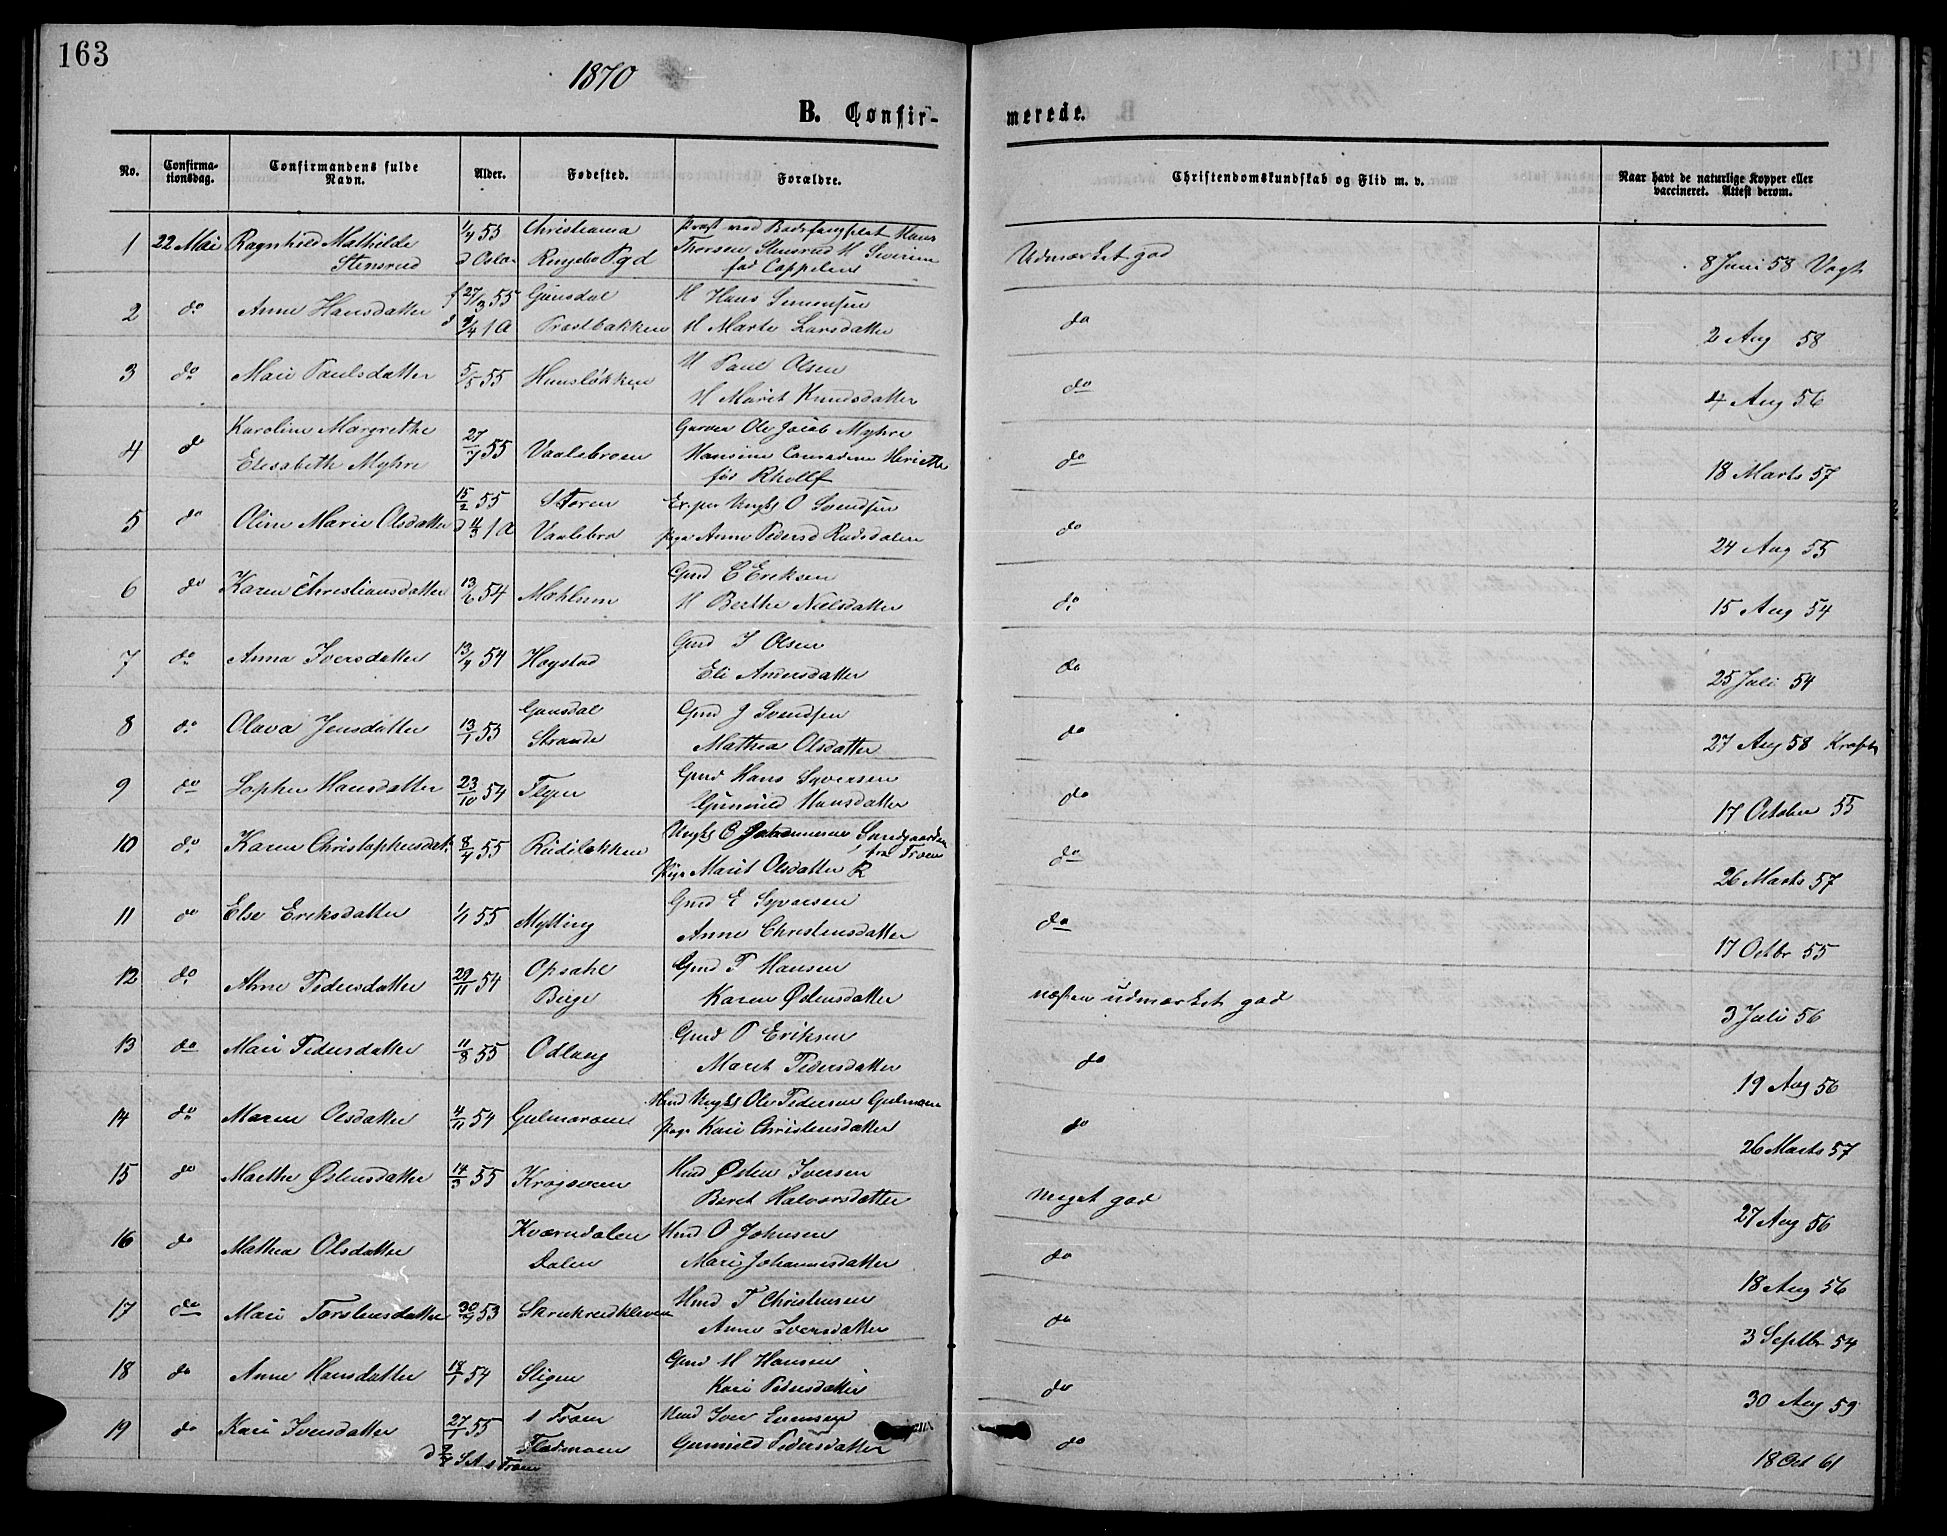 163
1870
B. Confir-
merede.
No.
Confirma-
tionsdag.
Confirmandens fulde
Navn.
Alder.
Fødested.
Forældre.
Christendomskundskab og Flid m. v.
Naar havt de naturlige Kopper eller
vaccineret. Attest derom.
1 22 Mai Ragnhild Mathilde 1/4 53 Christiania Præst ved Bodsfængslet Hans
Stensrud d Oslo Ringebo Pgd Thorsen Stensrud H Severine
fød Cappelen
Udmærket god 8 Juni 58 Vogt
2 do Anne Hansdatter f 27/3 55 H Hans Simensen
d 9/4 Præstbakken H Marte Larsdatter
do 2 Aug 58
3 do Mari Paulsdatter 5/5 55 Hunsløkken H Paul Olsen
H Marit Knudsdatter
do 4 Aug 56
4 do Karoline Margrethe 27/7 55 Vaalebroen Garver Ole Jacob Myhre
Elisabeth Myhre Hansine Conradine
fød
do 18 Marts 57
5 do Oline Marie Olsdatter 15/2 55 Storen Ungk O Svendsen
d 4/3 Vaalebro pige Anne Pedersd
do 24 Aug 55
6 do Karen Christiansdatter 13/6 54 Mæhlum Gmd C Eriksen
H Berthe Nielsdatter
do 15 Aug 54
7 do Anna Iversdatter 13/4 54 Høystad Gmd I Olsen
Eli Andersdatter
do 25 Juli 54
8 do Olava Jensdatter 13/1 55 Strande Gmd J Svendsen
Mathea Olsdatter
do 27 Aug 58 Kraft
9 do Sophie Hansdatter 23/10 54 Flyen Gmd Hans Syversen
Gunild Hansdatter
do 17 October 55
10 do Karen Christophersdat. 8/4 55 Rudiløkken Ungk C Johannesen
fra Troen
pige Marit Olsdatter R
do 26 Marts 57
11 do Else Eriksdatter 1/1 55 Mytting Gmd E Syversen
Anne Christensdatter
do 17 Octbr 55
12 do Anne Pedersdatter 29/11 54 Opsahl Gmd P Hansen
Karen Østensdatter
næsten udmærket god 3 Juli 56
13 do Mari Pedersdatter 11/8 55 Odlaug Gmd P Eriksen
Marit Pedersdatter
do 19 Aug 56
14 do Maren Olsdatter 4/11 54 Gulmoroen Ungk Ole Pedersen Gulmoen
pige Kari Christensdatter
do 26 Marts 57
15 do Marthe Østensdatter 14/3 55 Hmd Østen Iversen
Beret Halvorsdatter
meget god 27 Aug 56
16 do Mathea Olsdatter Kværndalen Hmd O Johnsen
Dalen Mari Johannesdatter
do 18 Aug 56
17 do Mari Torstensdatter 53 Hmd T Christensen
Anne Iversdatter
do 3 Septbr 54
18 do Anne Hansdatter 54 Stigen Gmd H Hansen
Kari Pedersdatter
do 30 Aug 59
19 do Kari Iversdatter 27/1 55 Troen Hmd Iver Evensen
Flodmoen Gunnild Pedersdatter
do 18 Oct 61